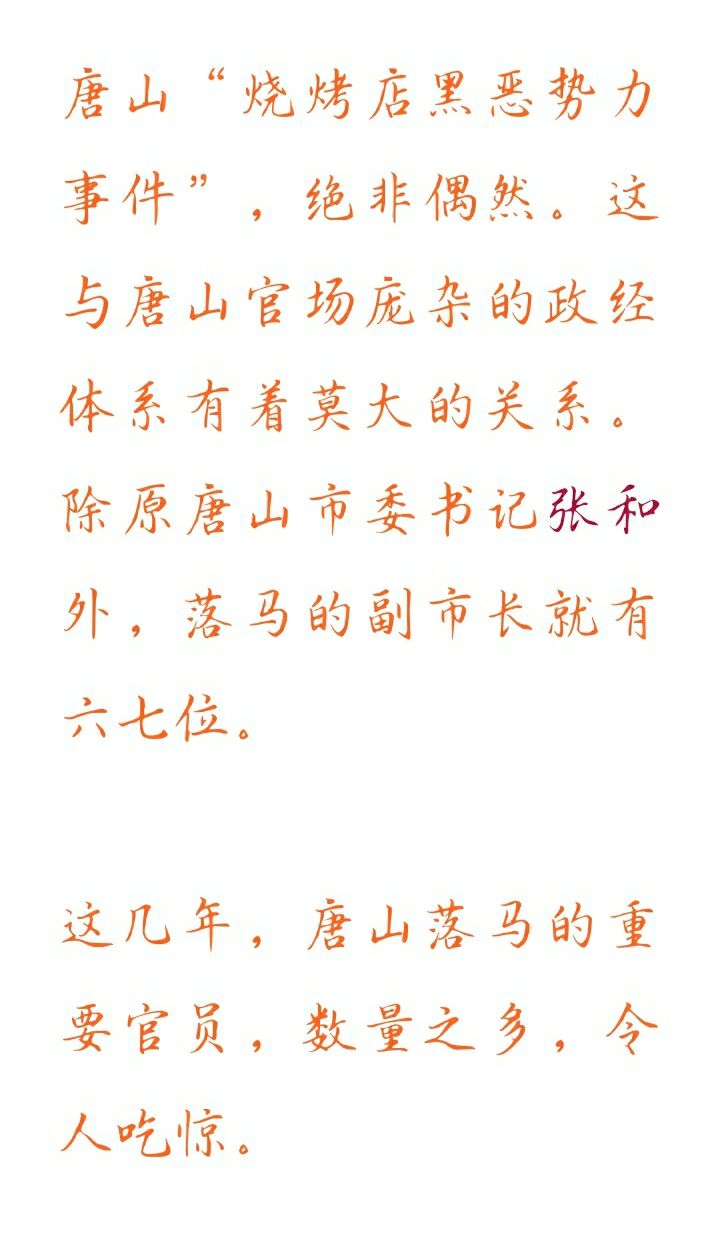 唐山“烧烤店黑恶势力
事件”，绝非偶然。这
与唐山官场庞杂的政经
体系有着莫大的关系。
除原唐山市委书记张和
外，落马的副市长就有
六七位。
这几年，唐山落马的重
要官员，数量之多，令
人吃惊。